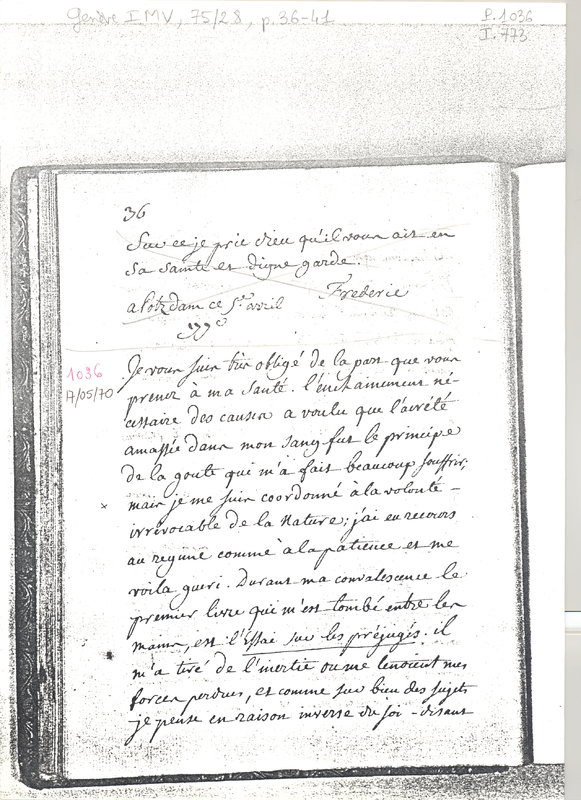 Genève I.M.V, 75/28, p. 36-41
P. 1036
I. 773
36
Sur ce je prie dieu qu'il vous ait en
sa sainte et digne garde.
a Potzdam ce 5e avril Frederic
1770
1036
17/05/70
Je vous suis très obligé de la part que vous
prenez à ma santé. l'enchainement né-
cessaire des causes a voulu que l'acreté
amassée dans mon sang fut le principe
de la goute qui m'a fait beaucoup souffrir;
x mais je me suis coordonné à la volonté -
irrévocable de la Nature; j'ai eu recours
au regime comme à la patience et me
voila gueri. Durant ma convalescence le
premier livre qui m'est tombé entre les
mains, est l'Essai sur les préjugés. il
m'a tiré de l'inertie ou me tenoient mes
forces perdues, et comme sur bien des sujets
je pense en raison inverse du soi-disant